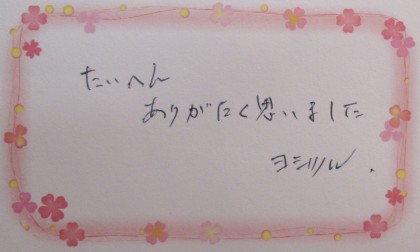 たいへん
ありがたく思いました
ヨシツル.